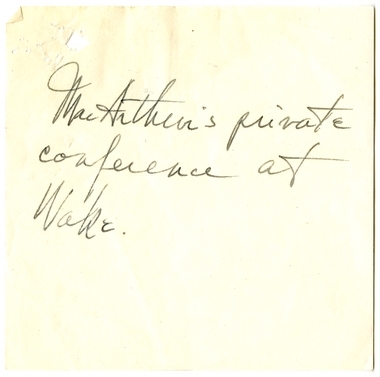 MacArthur's private
conference at
Wake.